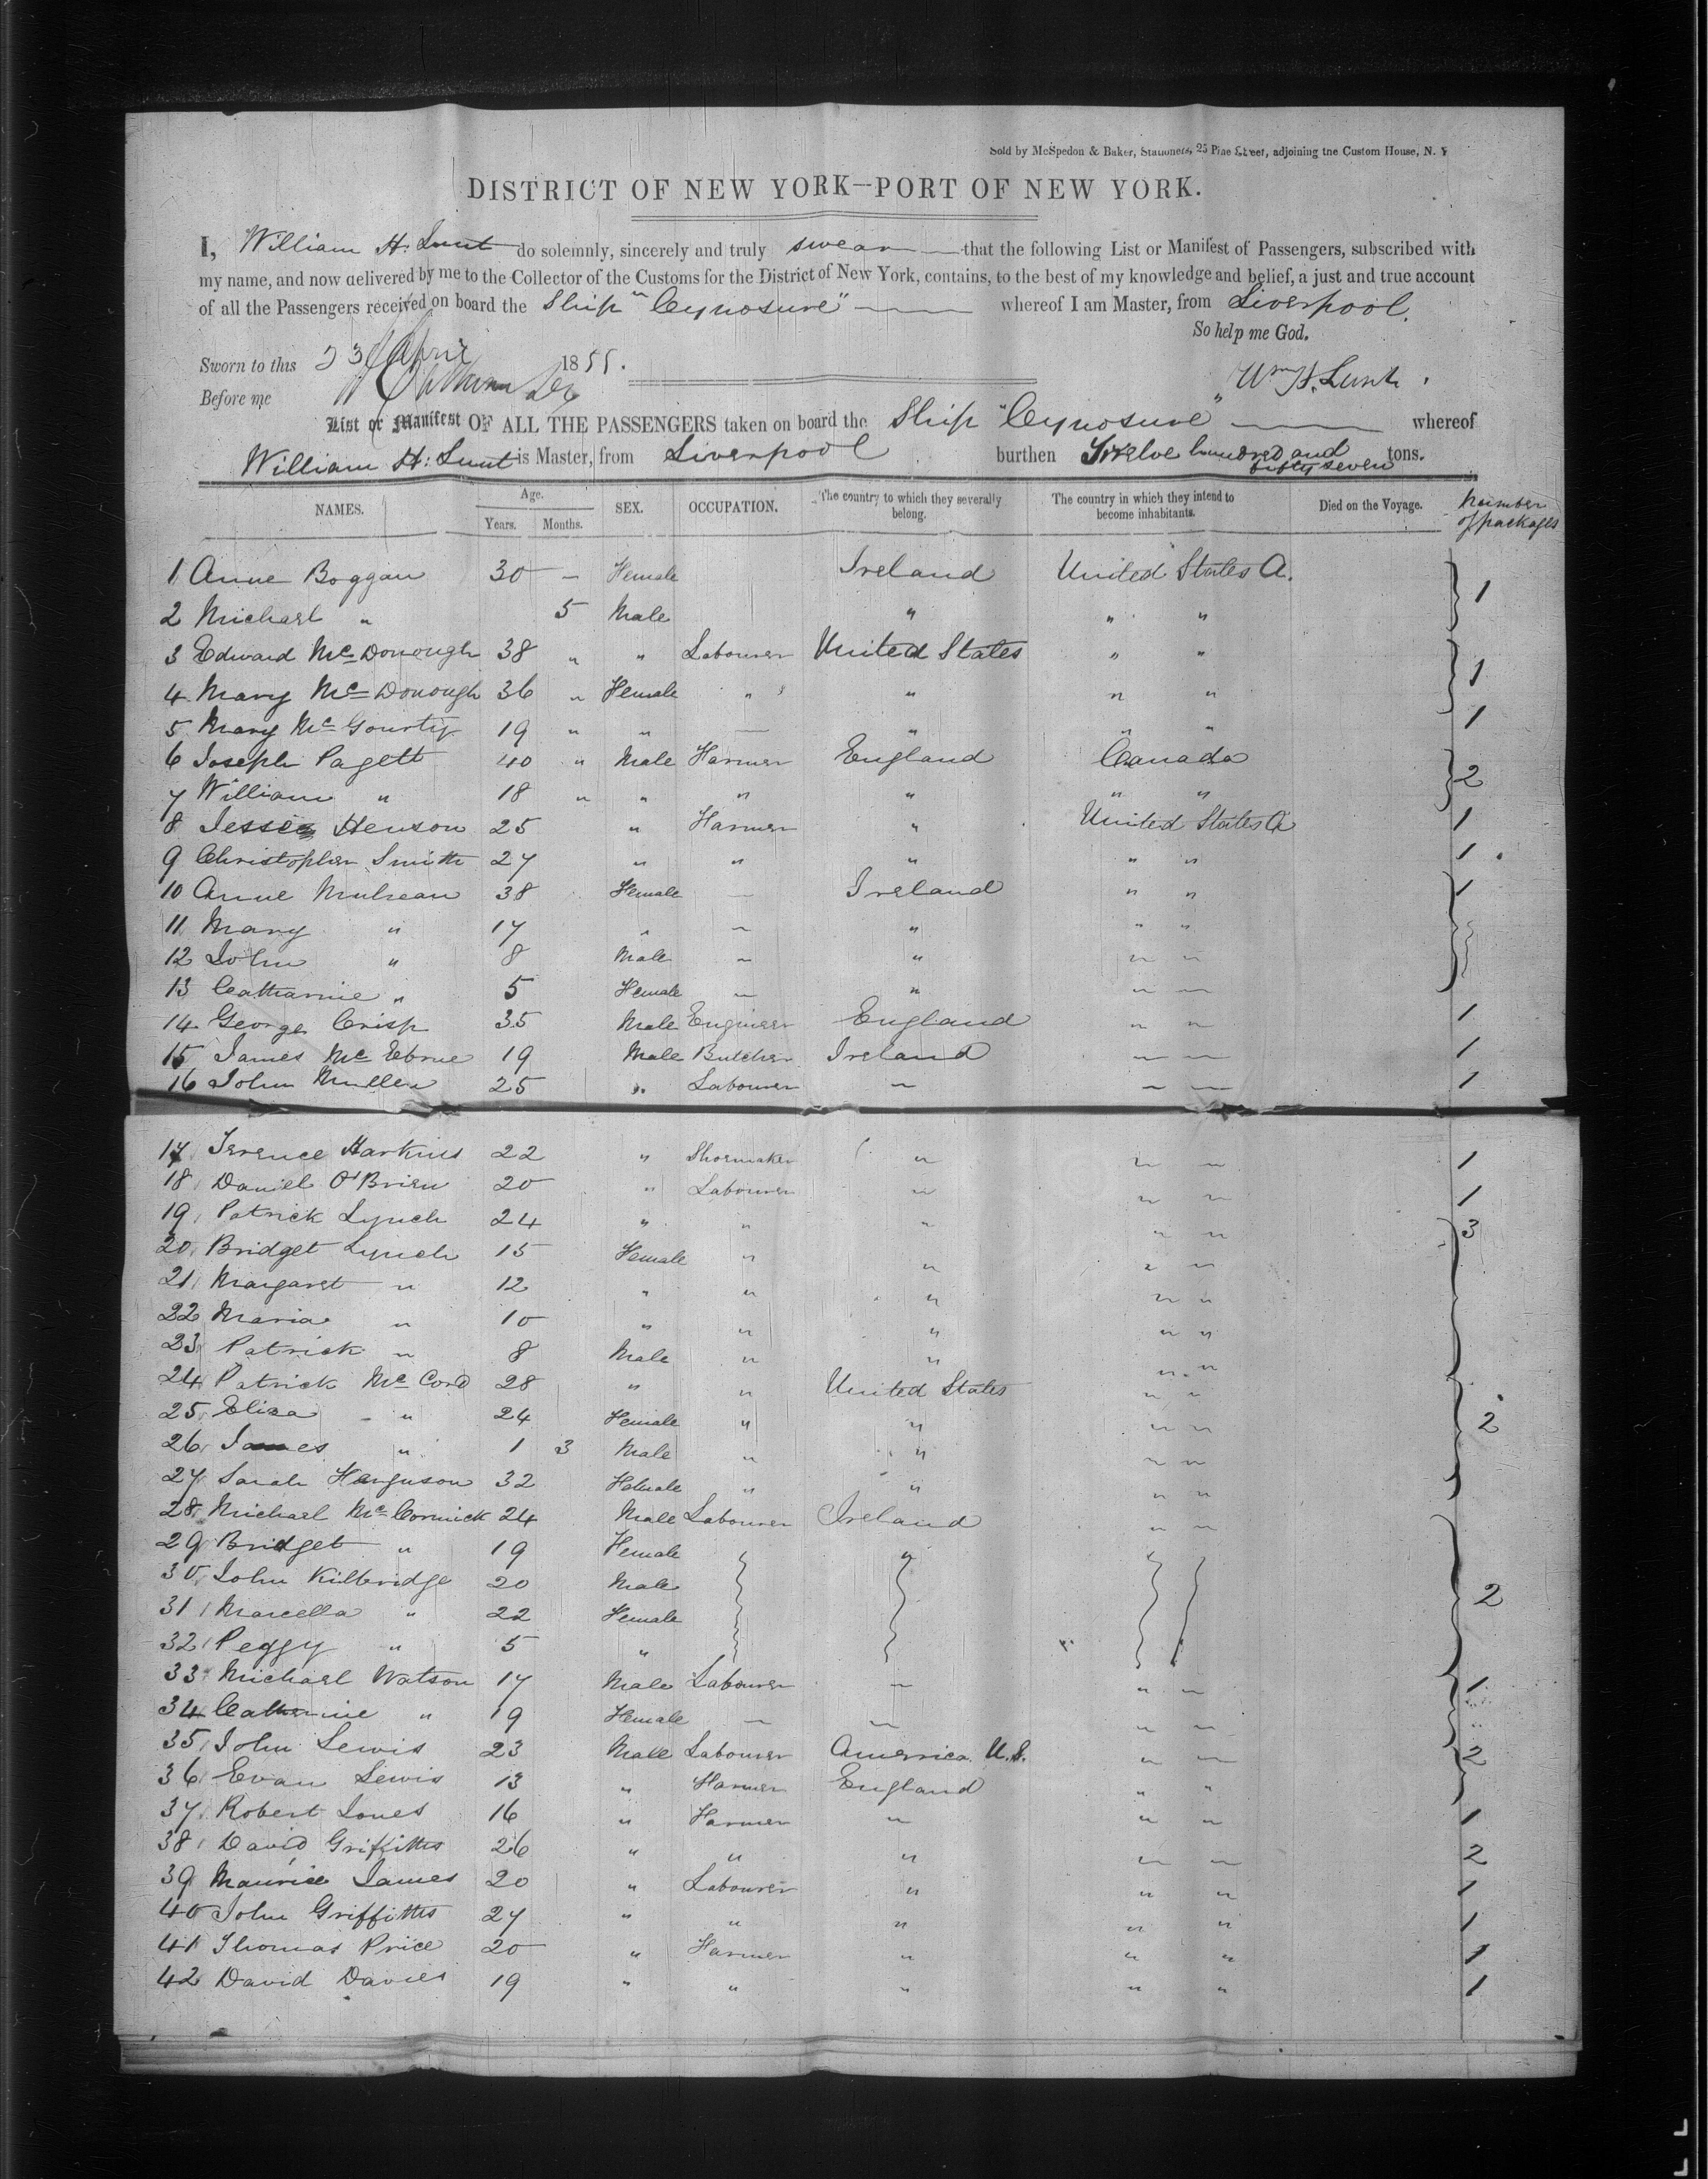 Sold by McSpedon & Baker, Stationers, 25 Pine Street, adjoining the Custom House, N. Y
DISTRICT OF NEW YORK—PORT OF NEW YORK.
I, William H. Lunt do solemnly, sincerely and truly swear that the following List or Manifest of Passengers, subscribed with
my name, and now delivered by me to the Collector of the Customs for the District of New York, contains, to the best of my knowledge and belief, a just and true account
of all the Passengers received on board the Ship "Cynosure" whereof I am Master, from Liverpool.
So help me God.
Sworn to this 23 April 1855.
Before me
Wm H. Lunt.
List or Manifest OF ALL THE PASSENGERS taken on board the Ship "Cynosure" whereof
William H. Lunt is Master, from Liverpool burthen Twelve hundred and fifty seven tons.
NAMES. Age. Years. Months. SEX. OCCUPATION. The country to which they severally belong. The country in which they intend to become inhabitants. Died on the Voyage. Number of packages
1 Anne Boggan 30 – Female Ireland United States A. 1
2 Michael " 5 Male " " "
3 Edward McDonough 38 " " Labourer United States " " 1
4 Mary McDonough 36 " Female " " " "
5 Mary McGourty 19 " " — " " " 1
6 Joseph Pagett 40 " Male Farmer England Canada 2
7 William " 18 " " " " " "
8 Jesse Henson 25 " Farmer " United States A 1
9 Christopher Smith 27 " " " " " 1
10 Anne Mulrean 38 Female — Ireland " " 1
11 Mary " 17 " – " " "
12 John " 8 Male – " " "
13 Catharine " 5 Female – " " "
14 George Crisp 35 Male Engineer England " " 1
15 James Mc 19 Male Butcher Ireland " " 1
16 John Mullen 25 " Labourer " " " 1
17 Terence Harkins 22 " Shoemaker " " " 1
18 Daniel O'Brien 20 " Labourer " " " 1
19 Patrick Lynch 24 " " " " " 3
20 Bridget Lynch 15 Female " " " "
21 Margaret " 12 " " " " "
22 Maria " 10 " " " " "
23 Patrick " 8 Male " " " "
24 Patrick McCord 28 " " United States " "
25 Eliza " 24 Female " " " " 2
26 James " 1 3 Male " " " "
27 Sarah Ferguson 32 Female " " " "
28 Michael McCormick 24 Male Labourer Ireland " "
29 Bridget " 19 Female
30 John Kilbridge 20 Male
31 Marcella " 22 Female 2
32 Peggy " 5 "
33 Michael Watson 17 Male Labourer " " " 1
34 Catherine " 19 Female — " " "
35 John Lewis 23 Male Labourer America U.S. " " 2
36 Evan Lewis 13 " Farmer England " "
37 Robert Jones 16 " Farmer " " " 1
38 David Griffiths 26 " " " " " 2
39 Maurice James 20 " Labourer " " " 1
40 John Griffiths 27 " " " " " 1
41 Thomas Price 20 " Farmer " " " 1
42 David Davies 19 " " " " " 1